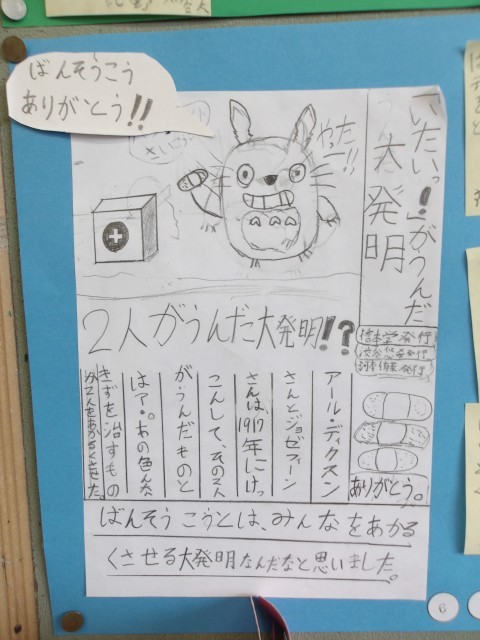 ばんそうこう
ありがとう!!
やったー!!
「いたいっ!」がうんだ
大発明
2人がうんだ大発明!?
アール・ディクスン
さんとジョゼフィーン
さんは、1917年にけっ
こんして、その2人
がうんだものと
はア・あの色んな
きずを治すもの
ありがとう。
ばんそうこうとは、みんなをあかる
くさせる大発明なんだなと思いました。
6